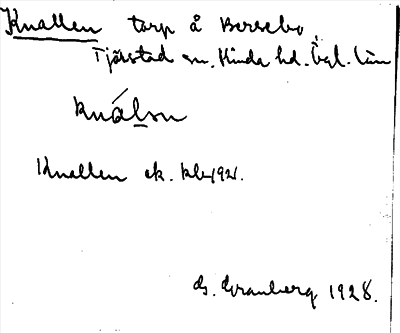 Knallen torp å Bersebo,
Tjärstad sn. Kinda hd. Ögl. län
knálsn
Knallen ek. kb 1921.
G. Granberg 1928.